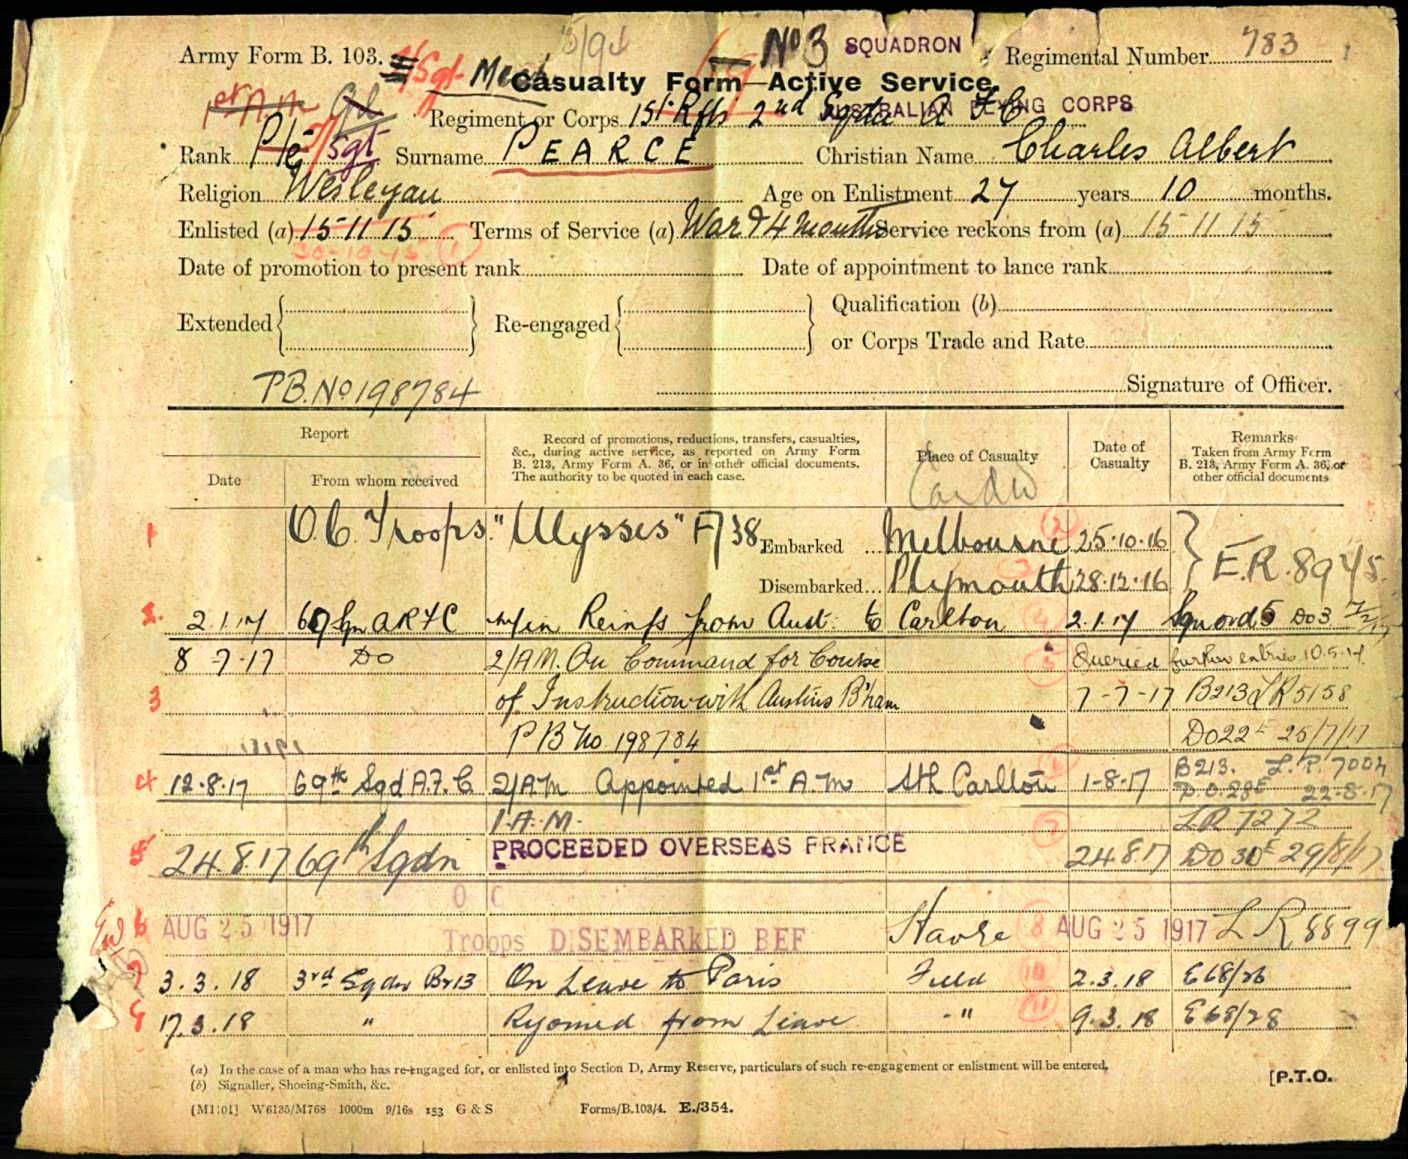 Army Form B. 103. Sgt. No 3 SQUADRON Regimental Number 783
Casualty Form—Active Service.
AUSTRALIAN FLYING CORPS
Regiment or Corps 1st Rfts 2nd Sqdn A F C
Rank Pte Sgt Surname PEARCE Christian Name Charles Albert
Religion Wesleyan Age on Enlistment 27 years 10 months.
Enlisted (a) 15 11 15 Terms of Service (a) War & 4 months Service reckons from (a) 15 11 15
30-10-15 1
Date of promotion to present rank Date of appointment to lance rank
Extended Re-engaged Qualification (b)
or Corps Trade and Rate
P.B. No 198784 Signature of Officer.
Report
Date From whom received
Record of promotions, reductions, transfers, casualties, &c., during active service, as reported on Army Form B. 213, Army Form A. 36, or in other official documents. The authority to be quoted in each case.
Place of Casualty
Date of Casualty
Remarks Taken from Army Form B. 213, Army Form A. 36, or other official documents
1 O.C. Troops "Ulysses" F738 Embarked Melbourne 2 25.10.16
Disembarked Plymouth 3 28.12.16 E.R. 8945.
2. 2.1.17 67 Sqn ARFC m/in Reinfs from Aust. to Carlton 4 2.1.17 DO3
8 -7-17 DO 2/AM. On Command for Course 5 Queried further entries 10.5.17
3 of Instruction with Austins B'ham 7-7-17 B213 LR5158
P B No. 198784 DO22E 25/7/17
4 12.8.17 69th Sqd A.F.C 2/AM Appointed 1st A.M Sth Carlton 6 1-8-17 B213. L.R. 7004
D.O.28E 22-8-17
1.A.M. 7 LR 7272
5 24.8.17 69th Sqdn PROCEEDED OVERSEAS FRANCE 24.8.17 DO 30E 29/8/17
O C
6 AUG 25 1917 Troops DISEMBARKED BEF Havre 8 AUG 25 1917 LR 8899
7 3.3.18 3rd Sqdn B213 On Leave to Paris Field 10 2.3.18 E68/26
17.3.18 " Rejoined from Leave -"- 11 9.3.18 E68/28
(a) In the case of a man who has re-engaged for, or enlisted into Section D, Army Reserve, particulars of such re-engagement or enlistment will be entered.
(b) Signaller, Shoeing-Smith, &c. [P.T.O.
[M1101] W6135/M768 1000m 9/16s 153 G & S Forms/B.103/4. E./354.